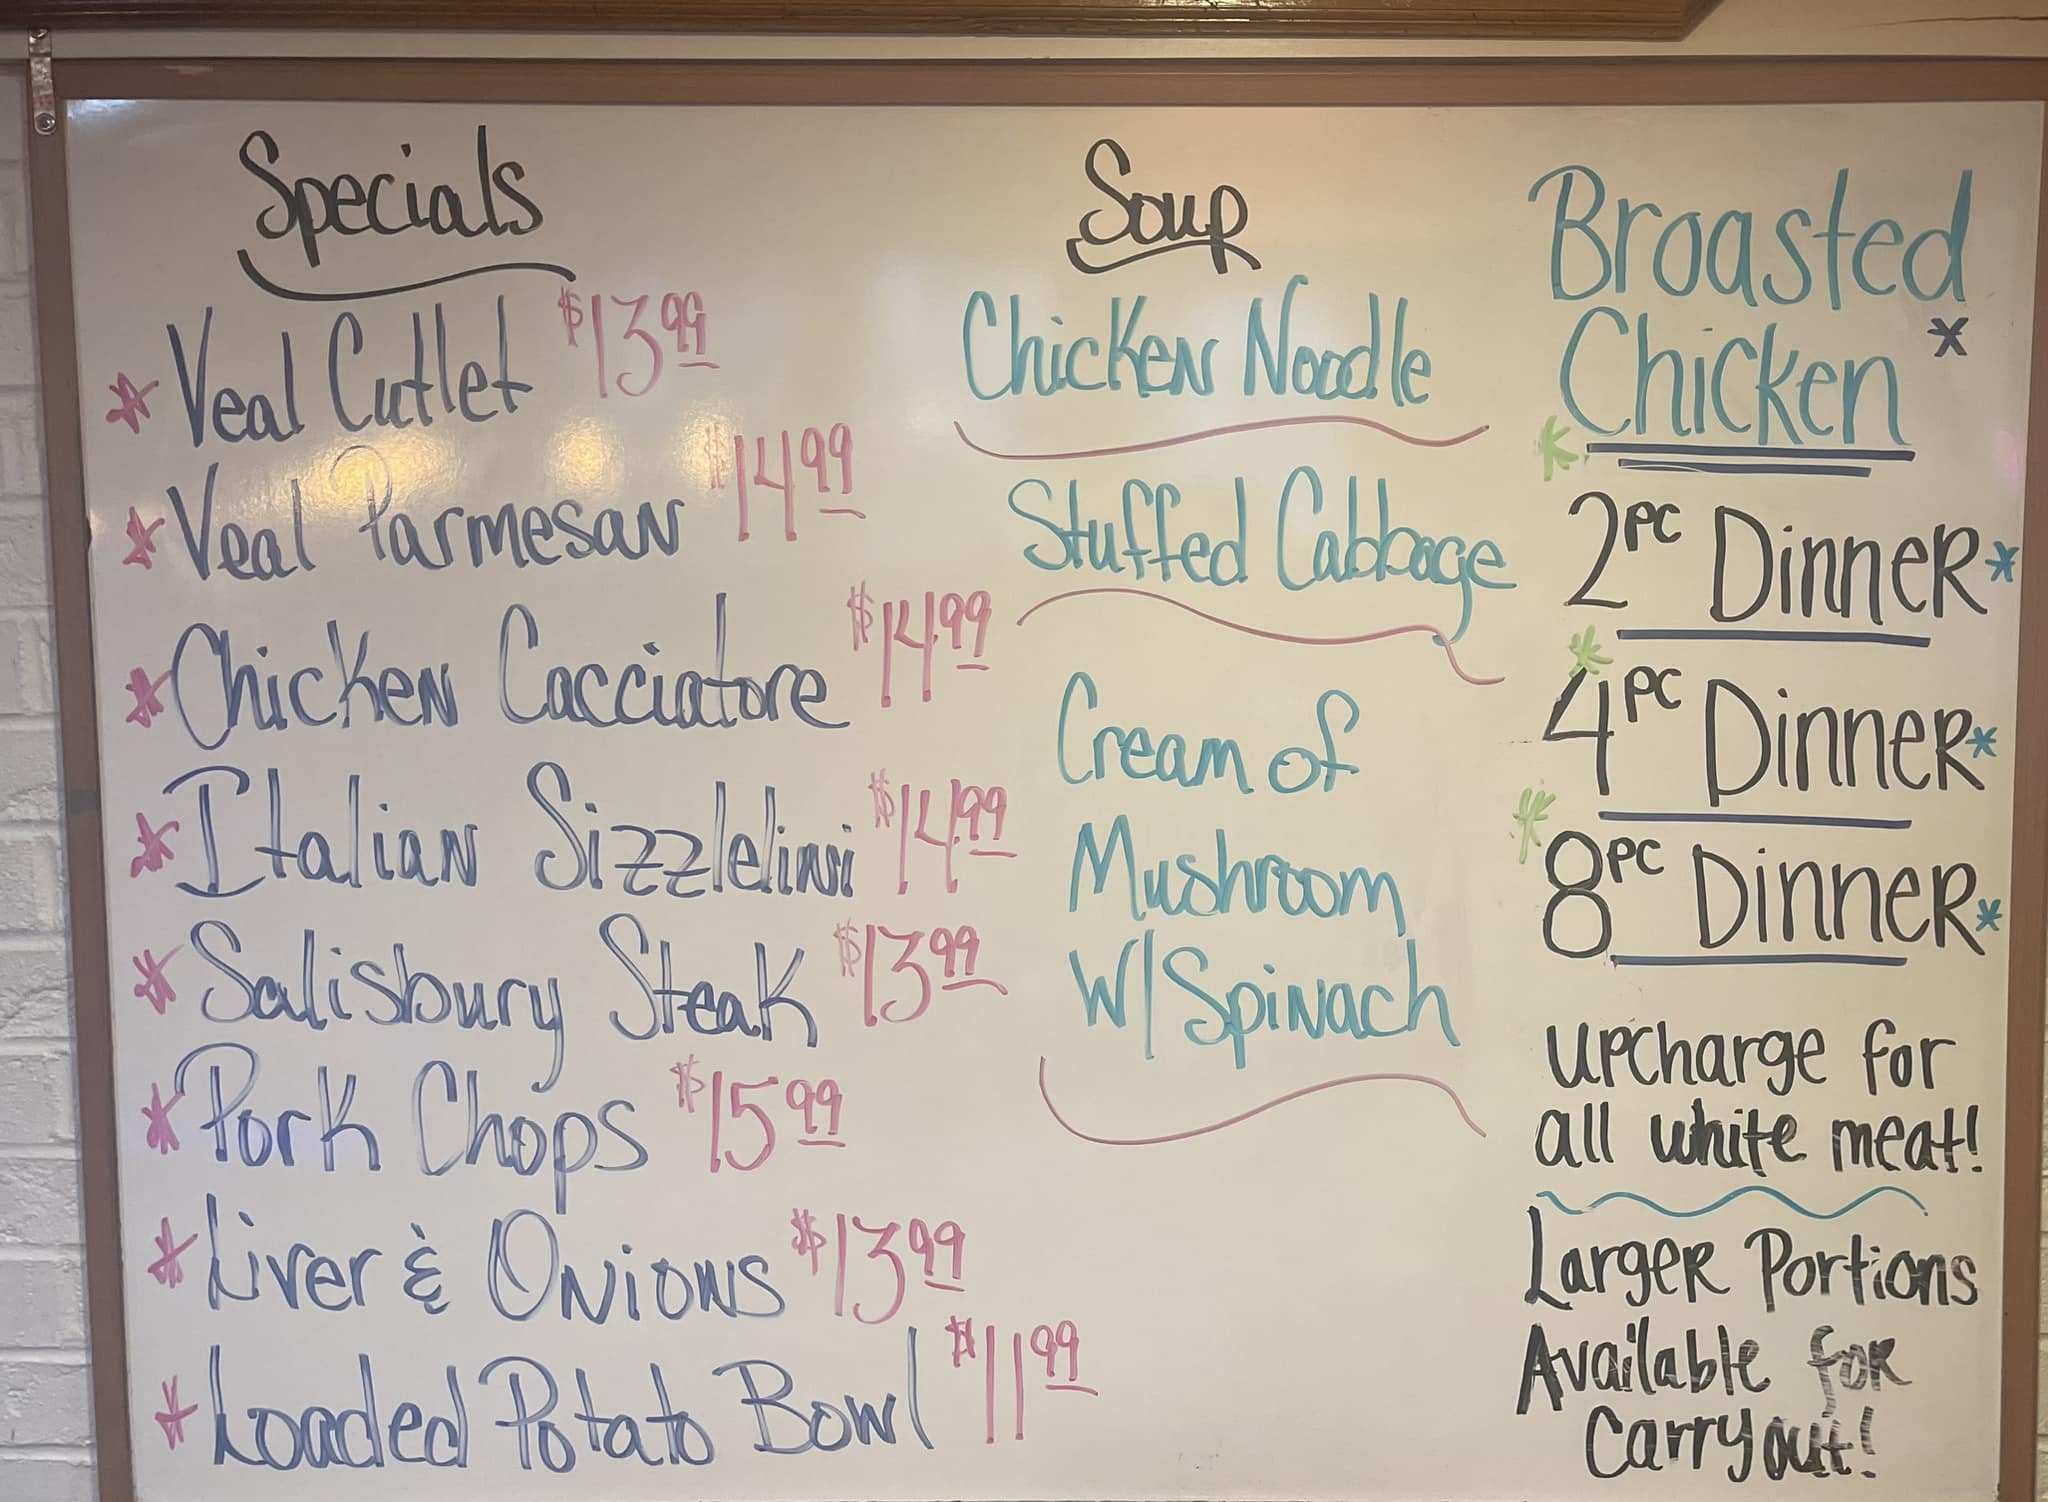 Specials
* Veal Cutlet $13.99
* Veal Parmesan $14.99
* Chicken Cacciatore $14.99
* Italian Sizzlelini $14.99
* Salisbury Steak $13.99
* Pork Chops $15.99
* Liver & Onions $13.99
* Loaded Potato Bowl $11.99
Soup
Chicken Noodle
Stuffed Cabbage
Cream of
Mushroom
W/Spinach
Broasted
Chicken *
* 2pc Dinner *
* 4pc Dinner *
* 8pc Dinner *
Upcharge for
all white meat!
Larger Portions
Available for
Carryout!